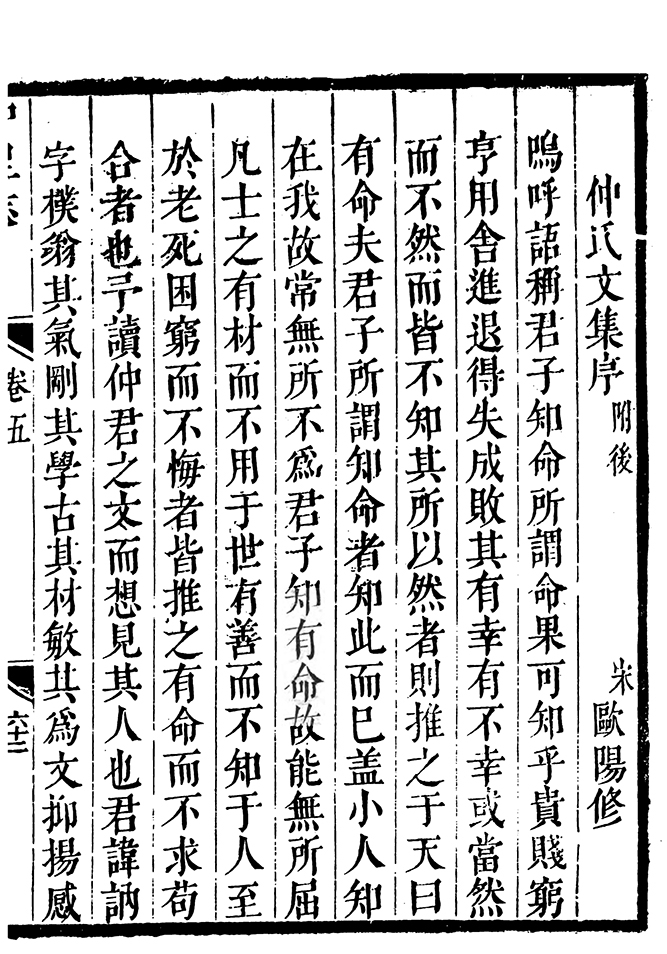 仲氏文集序 附後 宋 歐陽修
嗚呼語稱君子知命所謂命果可知乎貴賤窮
亨用舍進退得失成敗其有幸有不幸或當然
而不然而皆不知其所以然者則推之于天曰
有命夫君子所謂知命者知此而已盖小人知
在我故常無所不爲君子知有命故能無所屈
凡士之有材而不用于世有善而不知于人至
於老死困窮而不悔者皆推之有命而不求苟
合者也予讀仲君之文而想見其人也君諱訥
字樸翁其氣剛其學古其材敏其爲文抑揚感
卷五
六十二